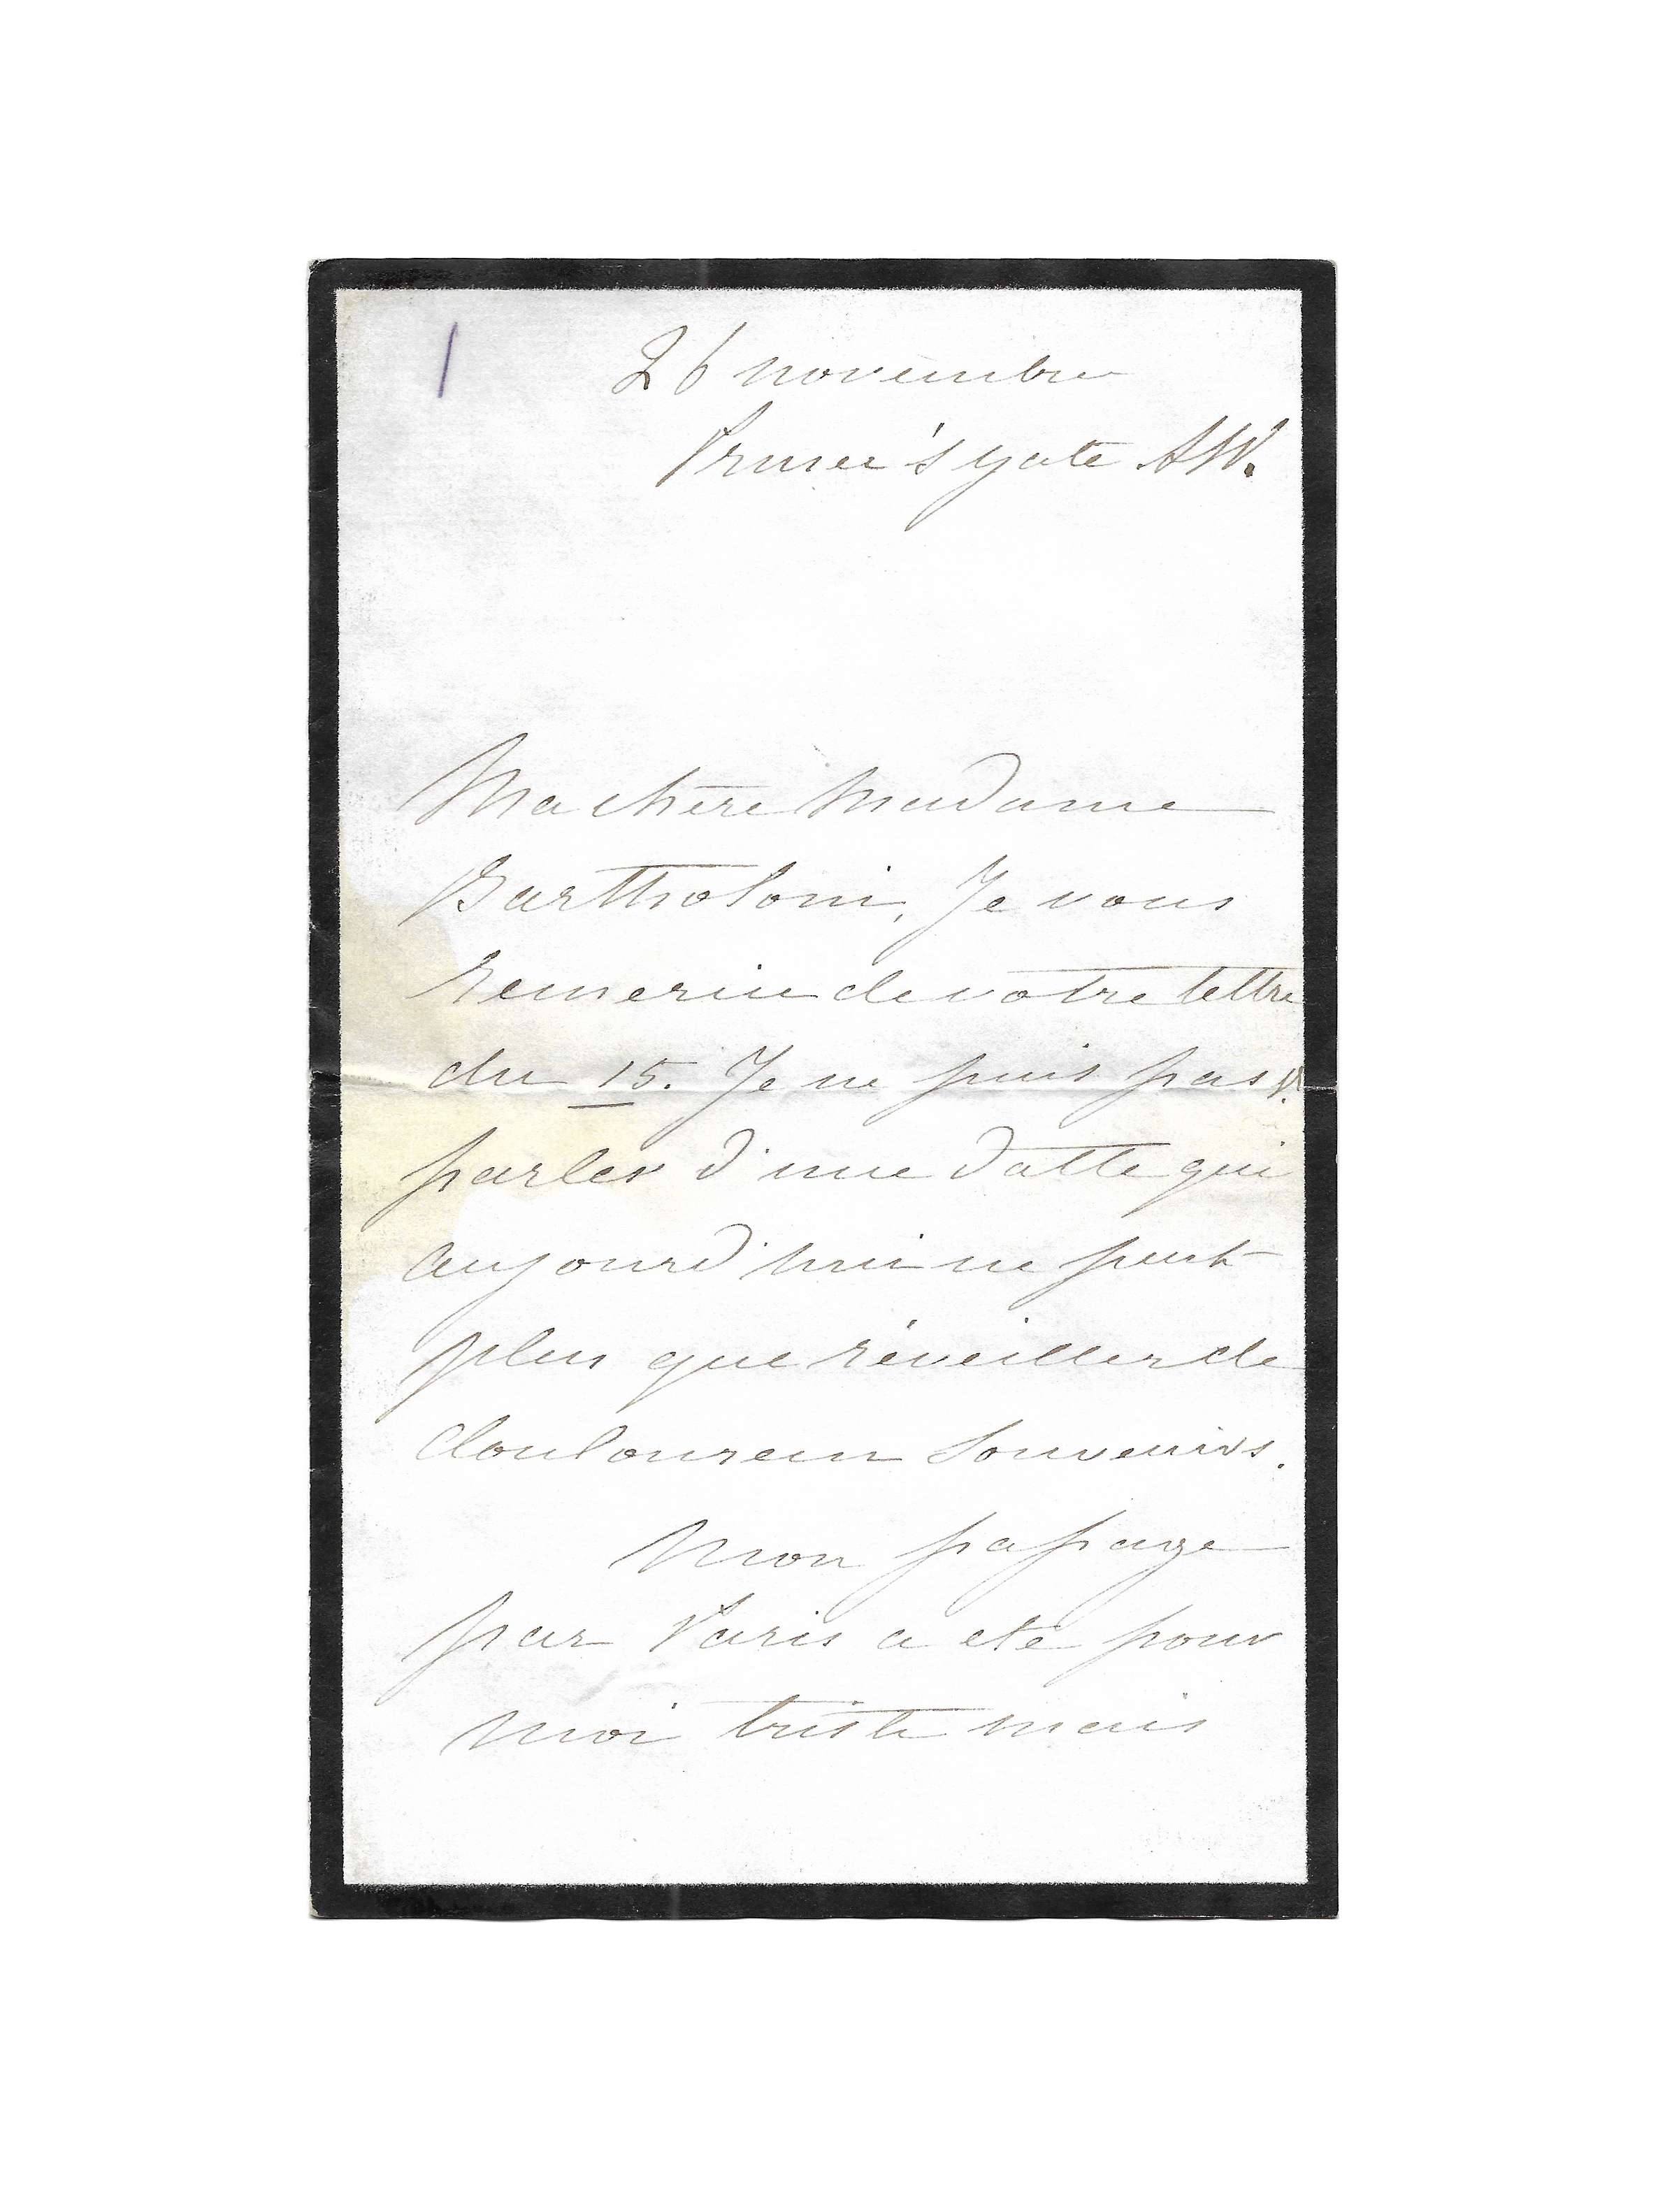 1
26 novembre
Prince's gate SW.
Ma chère Madame
Bartholoni, Je vous
remercie de votre lettre
du 15. Je ne puis pas v.
parler d'une datte qui
aujourd'hui ne peut
plus que réveiller de
douloureux souvenirs.
Mon passage
par Paris a eté pour
moi triste mais